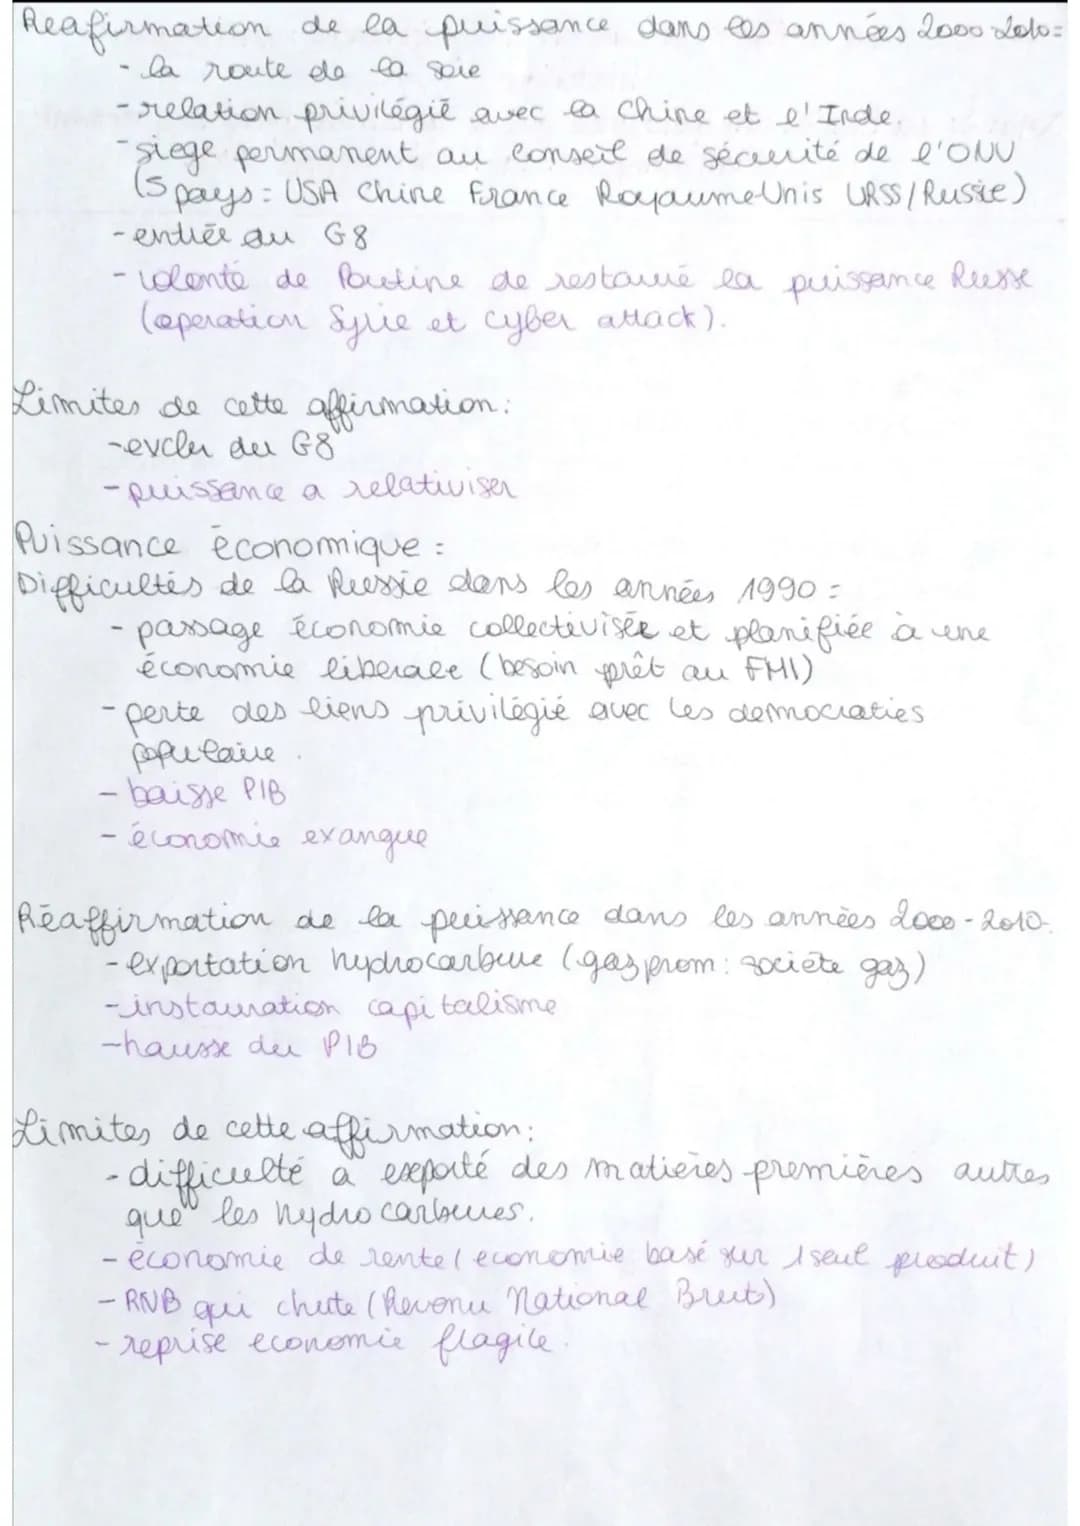 Reafirmation de la puissance dans les années 2000 2010=
- la route de la soie
- relation privilégié avec la Chine et l'Inde.
- siege permanent au conseil de sécurité de l'ONU
(5 pays: USA Chine France RoyaumeUnis URSS/Russie)
- entrée au G8
- volonté de Poutine de restauré la puissance Russe
(operation Syrie et cyber attack).
Limites de cette affirmation:
- exclu du G8
- puissance a relativiser
Puissance économique:
Difficultés de la Russie dans les années 1990=
- passage économie collectivisée et planifiée à une
économie liberale (besoin prêt au FMI)
- perte des liens privilégié avec les democraties
populaire.
- baisse PIB
- économie exangue
Réaffirmation de la puissance dans les années 2000-2010.
- exportation hydrocarbure (gazprom: société gaz)
- instauration capitalisme
- hausse du PIB
Limites de cette affirmation:
- difficulté a exporté des matières premières autres
que les hydrocarbures.
- économie de rente (economie basé sur 1 seul produit)
- RNB qui chute (Revenu National Brut)
- reprise economie fragile.